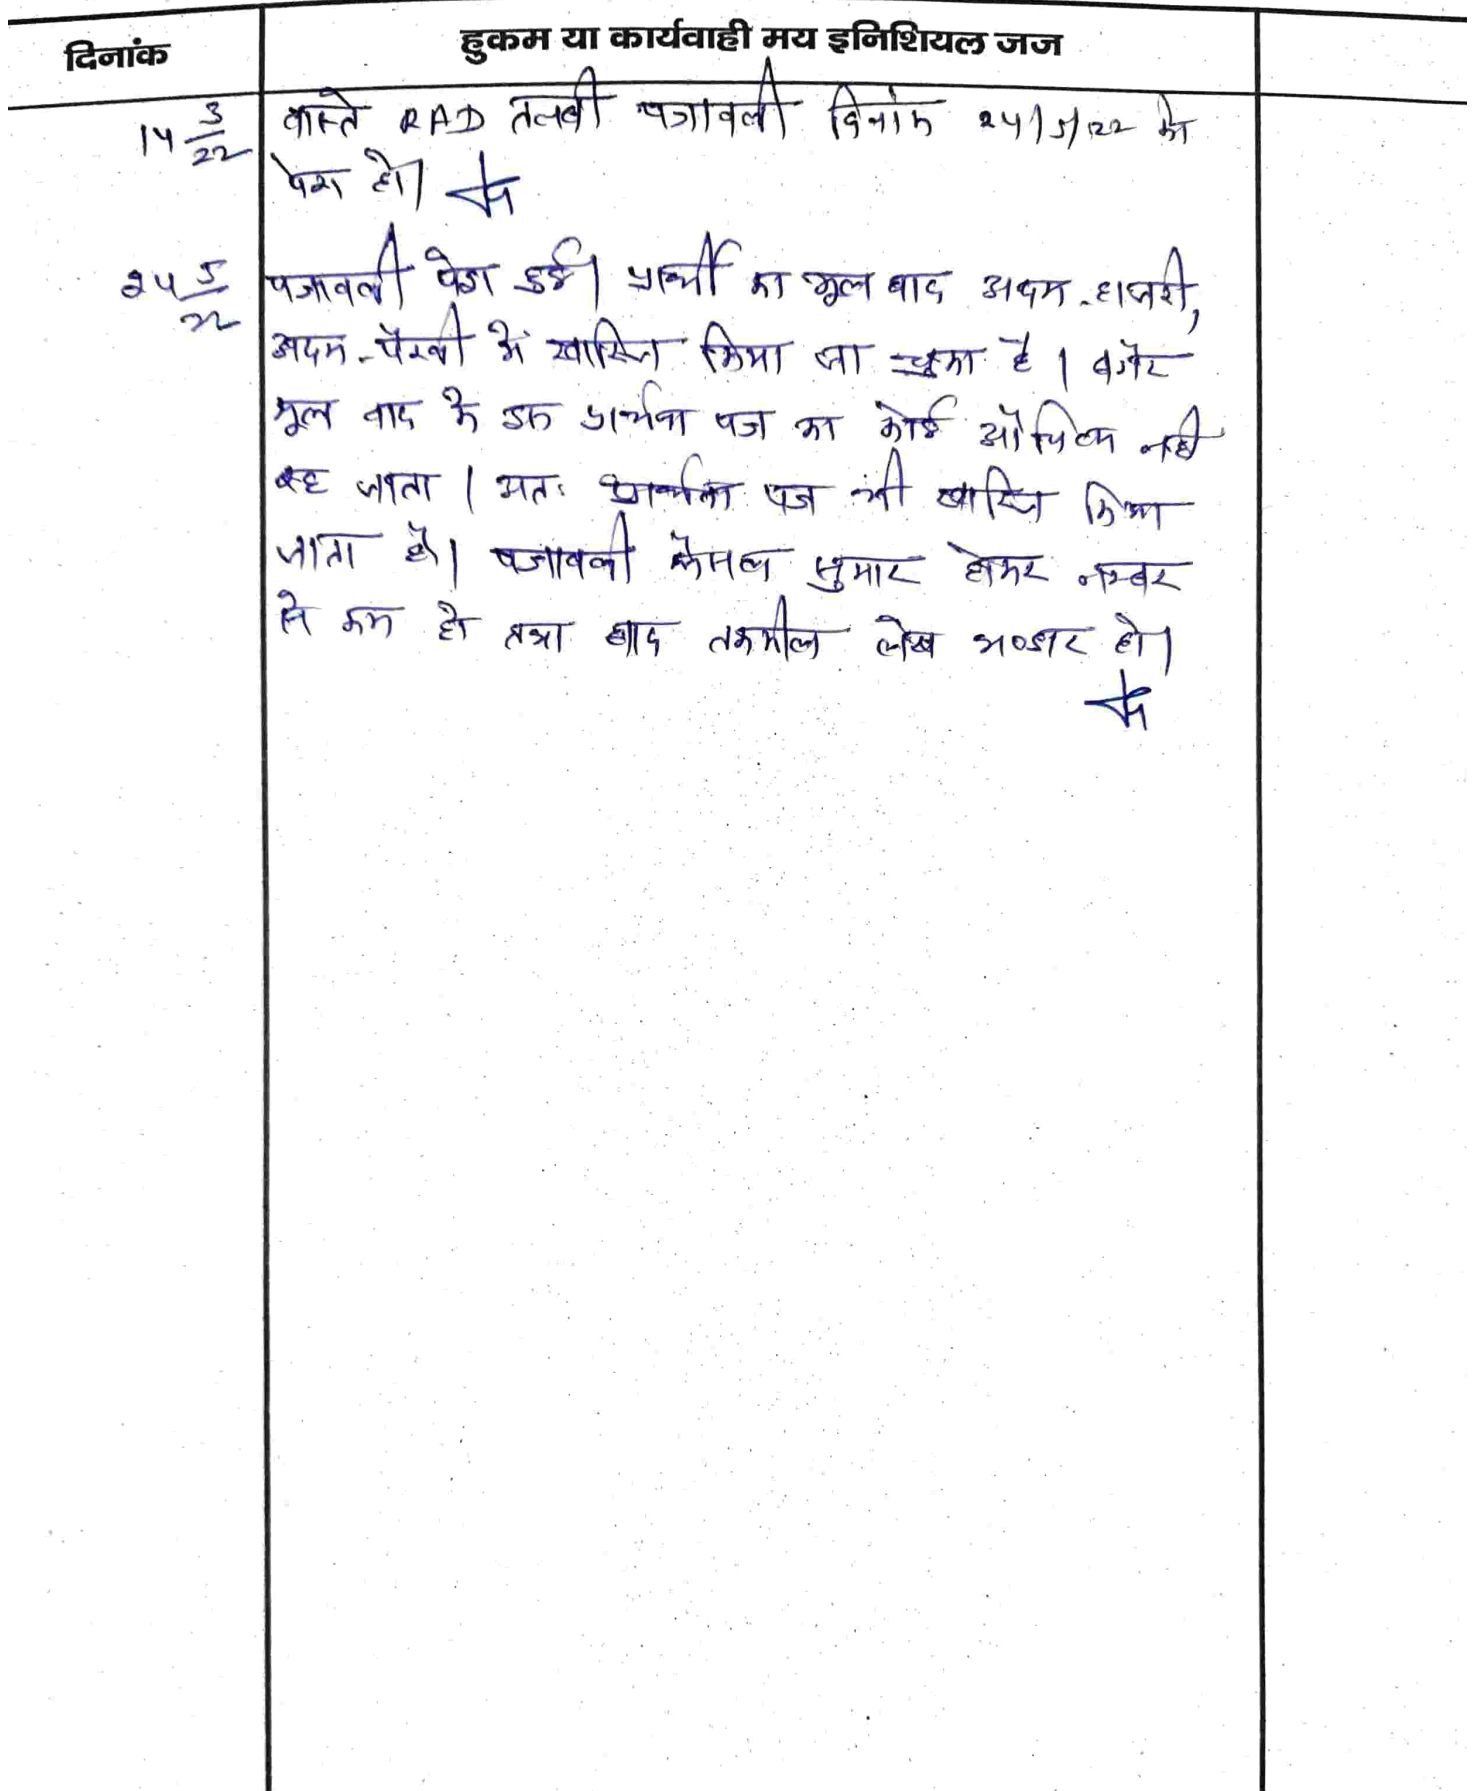 दिनांक
हुकम या कार्यवाही मय इनिशियल जज
14 3/22
वास्ते RAD तलबी पत्रावली दिनांक 24/5/22 को
पेश हो।
24 5/22
पत्रावली पेश हुई। प्रार्थी का मूल वाद अदम-हाजरी,
अदम-पैरवी में खारिज किया जा चुका है। बगैर
मूल वाद के इस प्रार्थना पत्र का कोई औचित्य नहीं
रह जाता। अतः प्रार्थना पत्र भी खारिज किया
जाता है। पत्रावली फैसल सुमार होकर नम्बर
से कम हो तथा बाद तकमील लेख भण्डार हो।